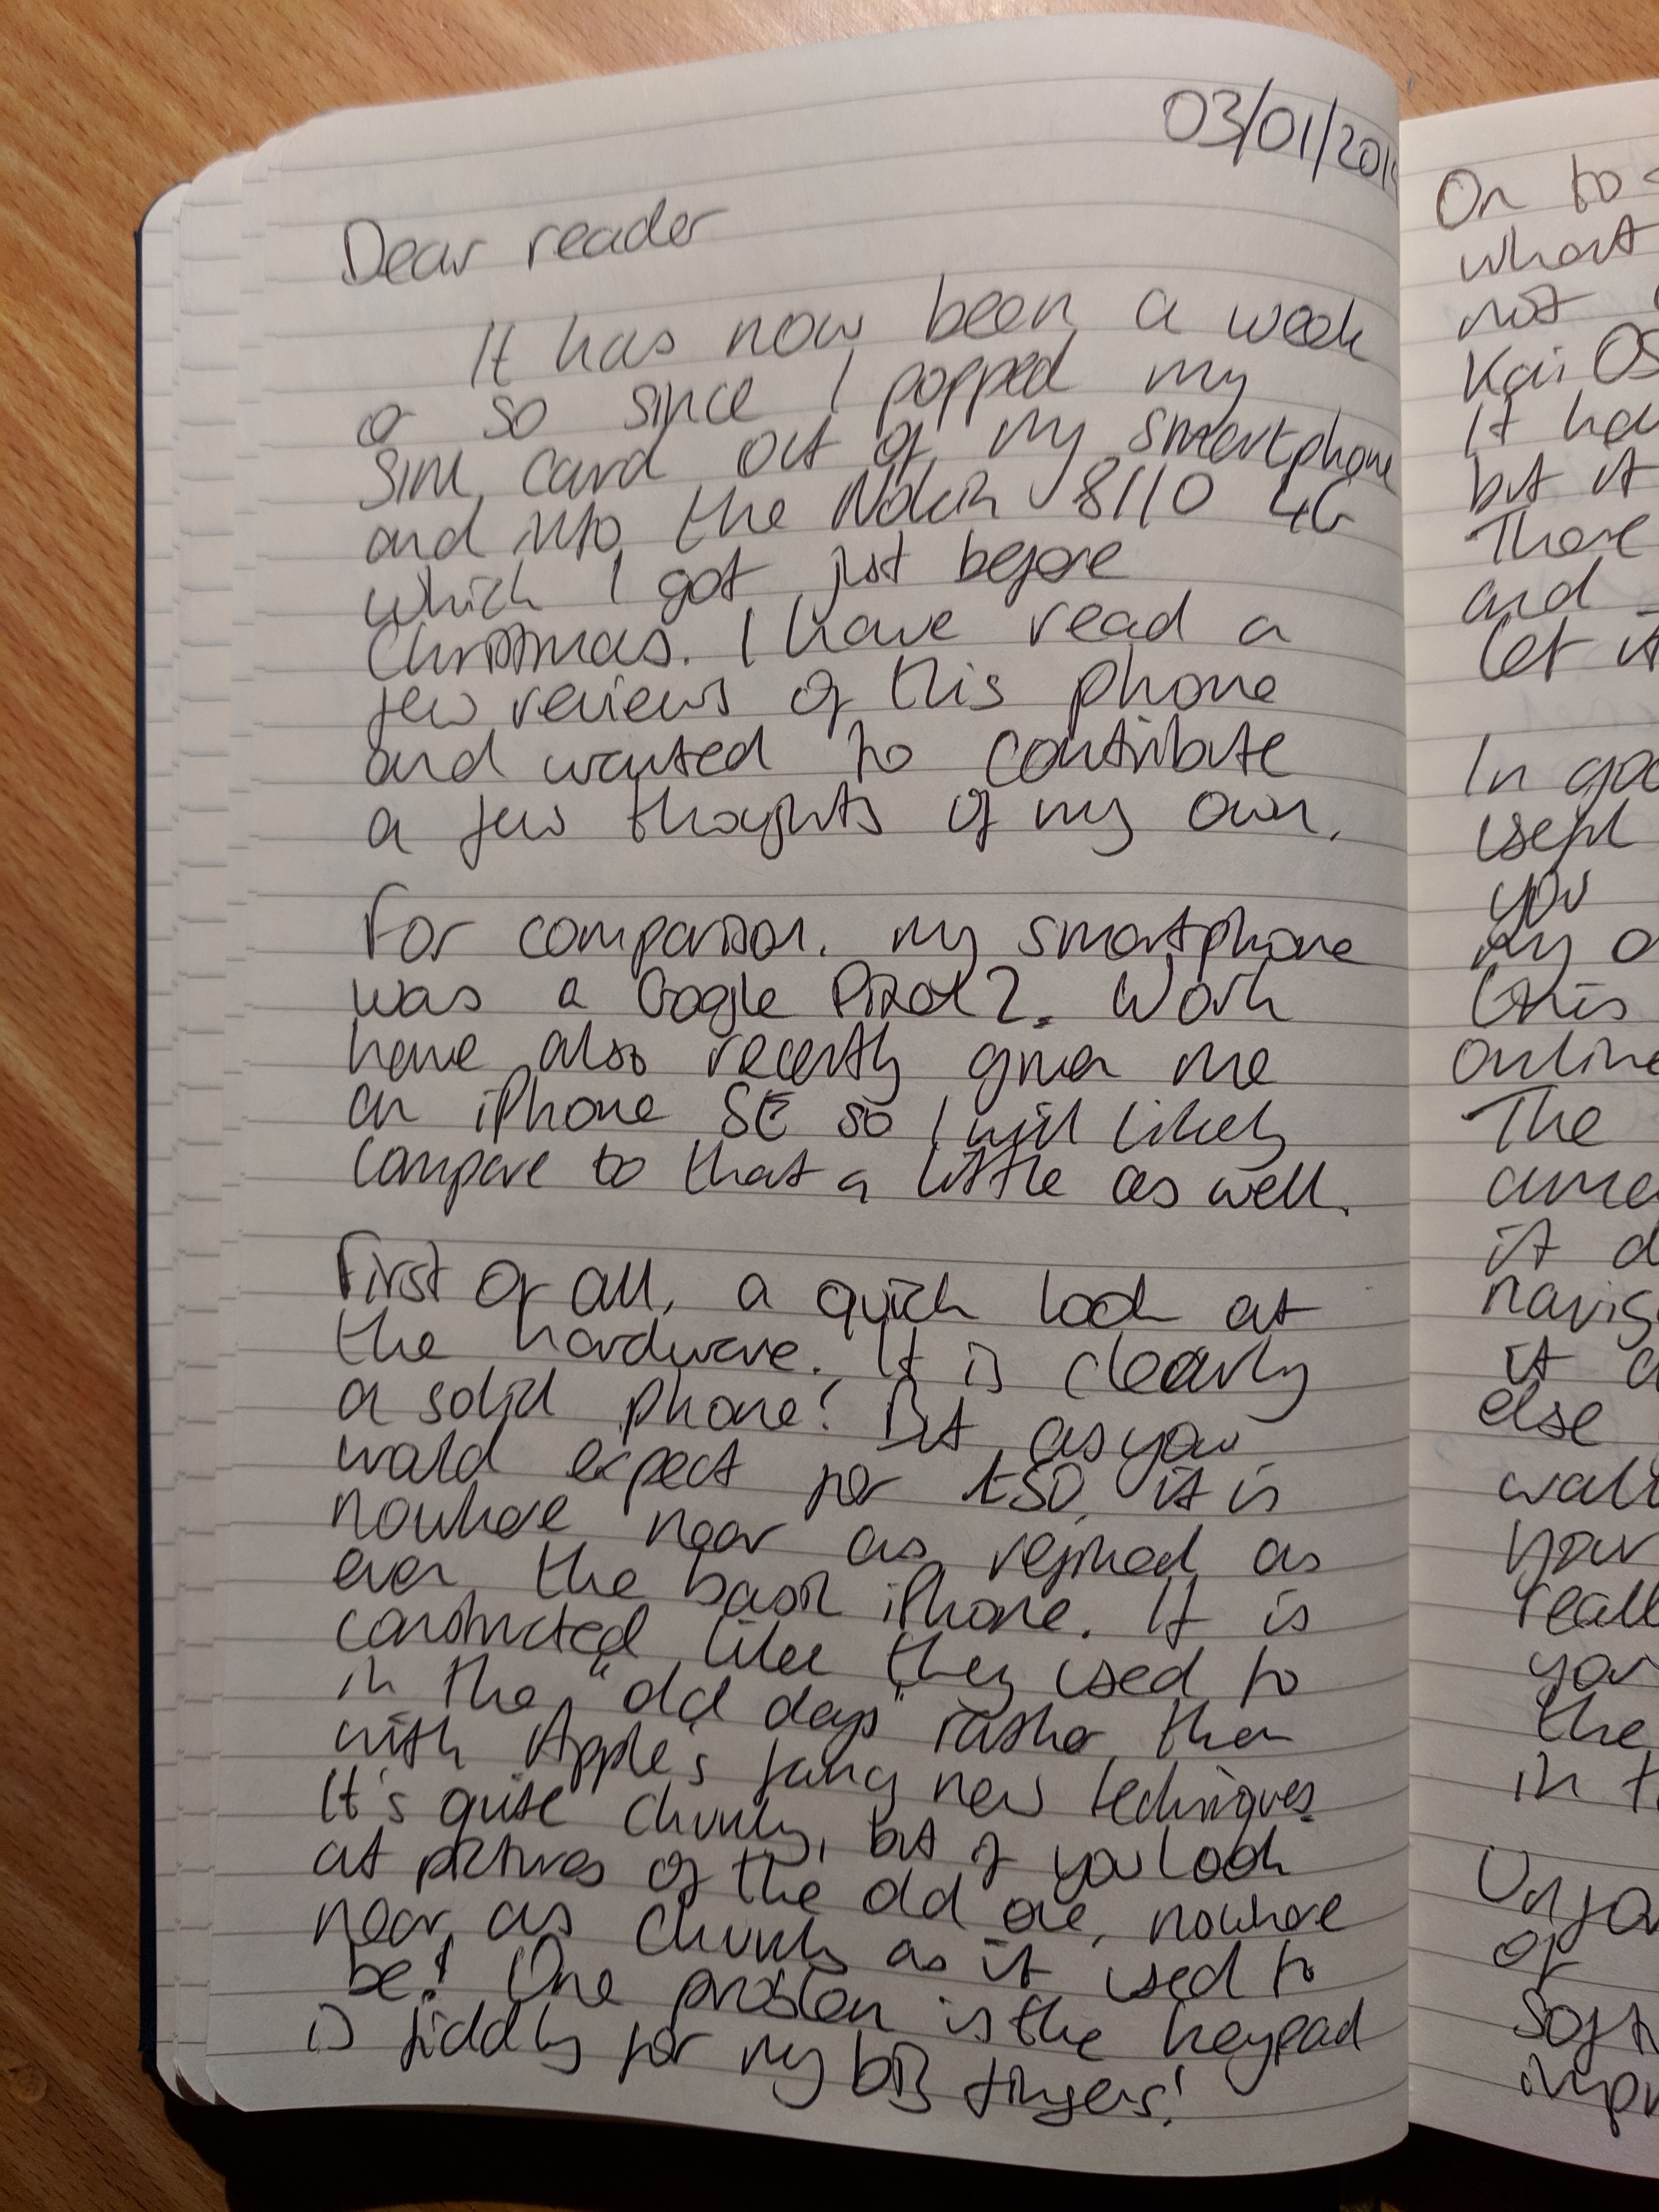 03/01/201
Dear reader
It has now been a week
or so since I popped my
SIM card out of my smartphone
and into the Nokia 8110 4G
which I got just before
Christmas. I have read a
few reviews of this phone
and wanted to contribute
a few thoughts of my own.
For comparison, my smartphone
was a Google Pixel 2. Work
have also recently given me
an iPhone SE so I will likely
compare to that a little as well.
First of all, a quick look at
the hardware. It is clearly
a solid phone! But as you
would expect for £50, it is
nowhere near as refined as
even the basic iPhone. It is
constructed like they used to
in the "old days" rather than
with Apple's fancy new techniques.
It's quite chunky, but if you look
at pictures of the old one, nowhere
near as chunky as it used to
be! One problem is the keypad
is fiddly for my big fingers!
On to
what
not
Kai OS
It ha
but it
There
and
let it
In goo
useful
you
my o
this
online
The
came
it d
navig
it a
else
wall
your
reall
you
the
in t
Unfo
of
soft
impr